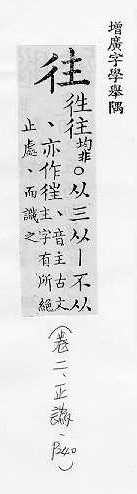 增廣字學舉隅
往
徃往均非○从三从丨不从
、亦作徃、音主古文
主字有所絕
止處、而識之
(卷二、正譌、P240)